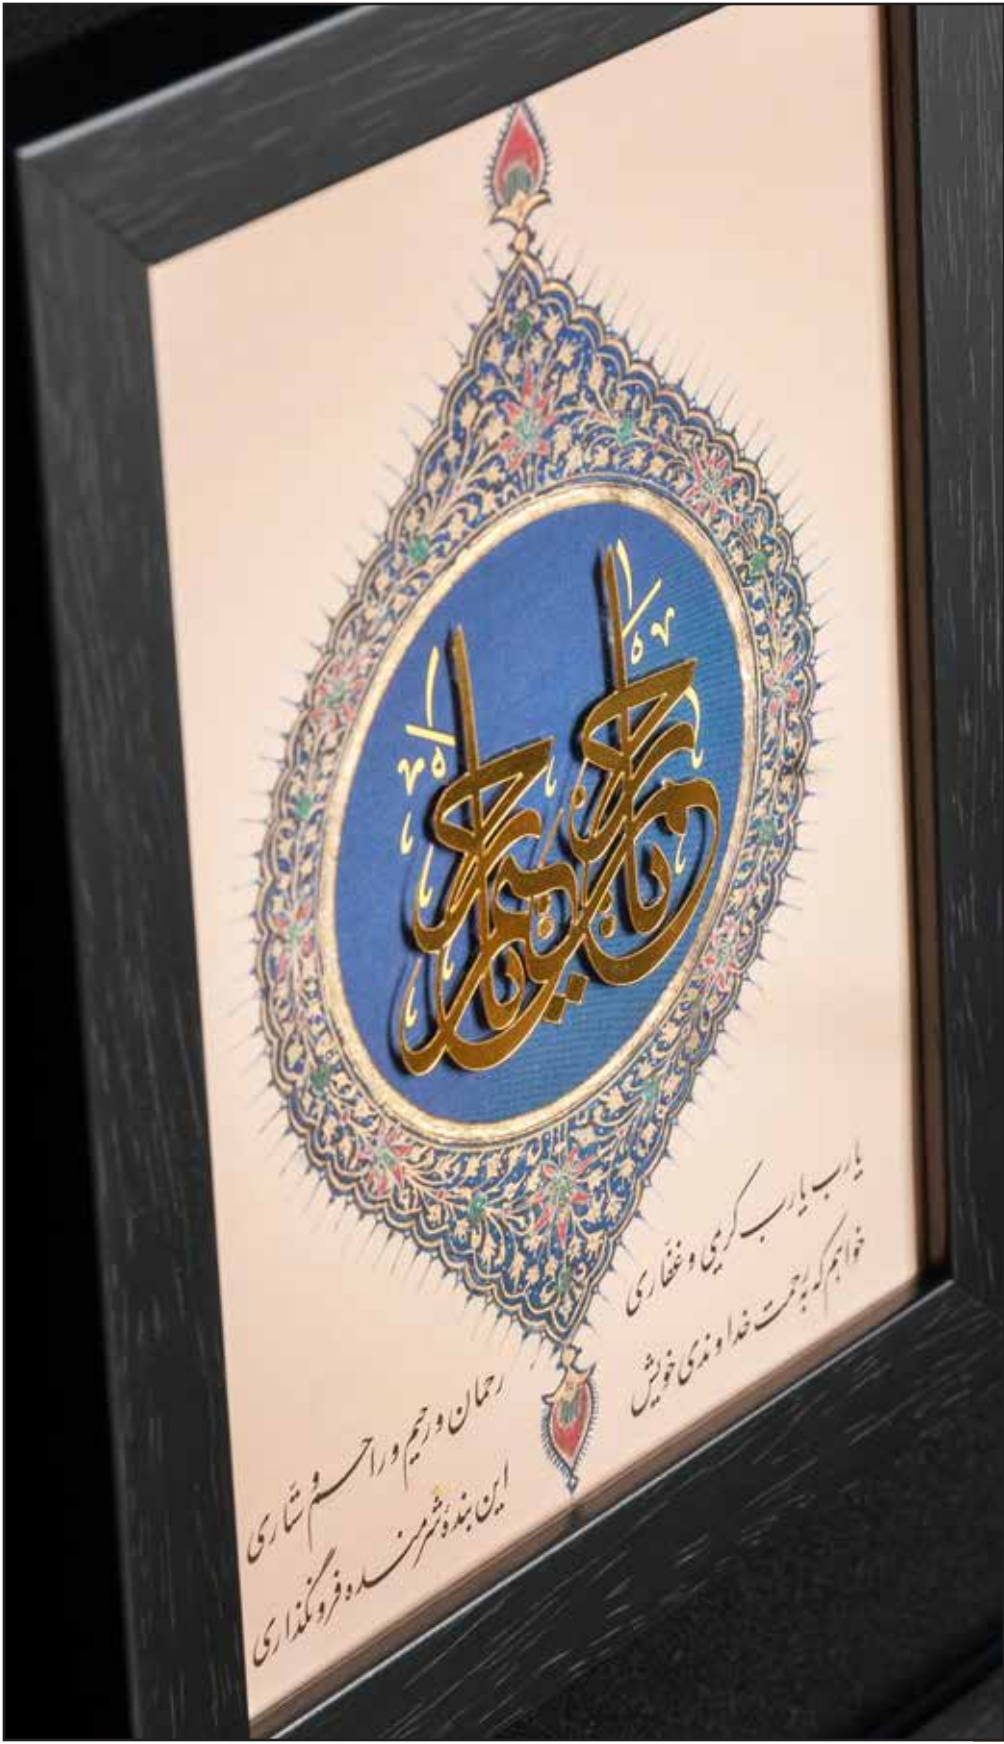 یا رحمن یا رحیم
یارب یارب کریمی و غفّاری
رحمان و رحیم و راحم و ستّاری
خواهم که برحمت خداوندی خویش
این بندهٔ شرمنده فرونگذاری